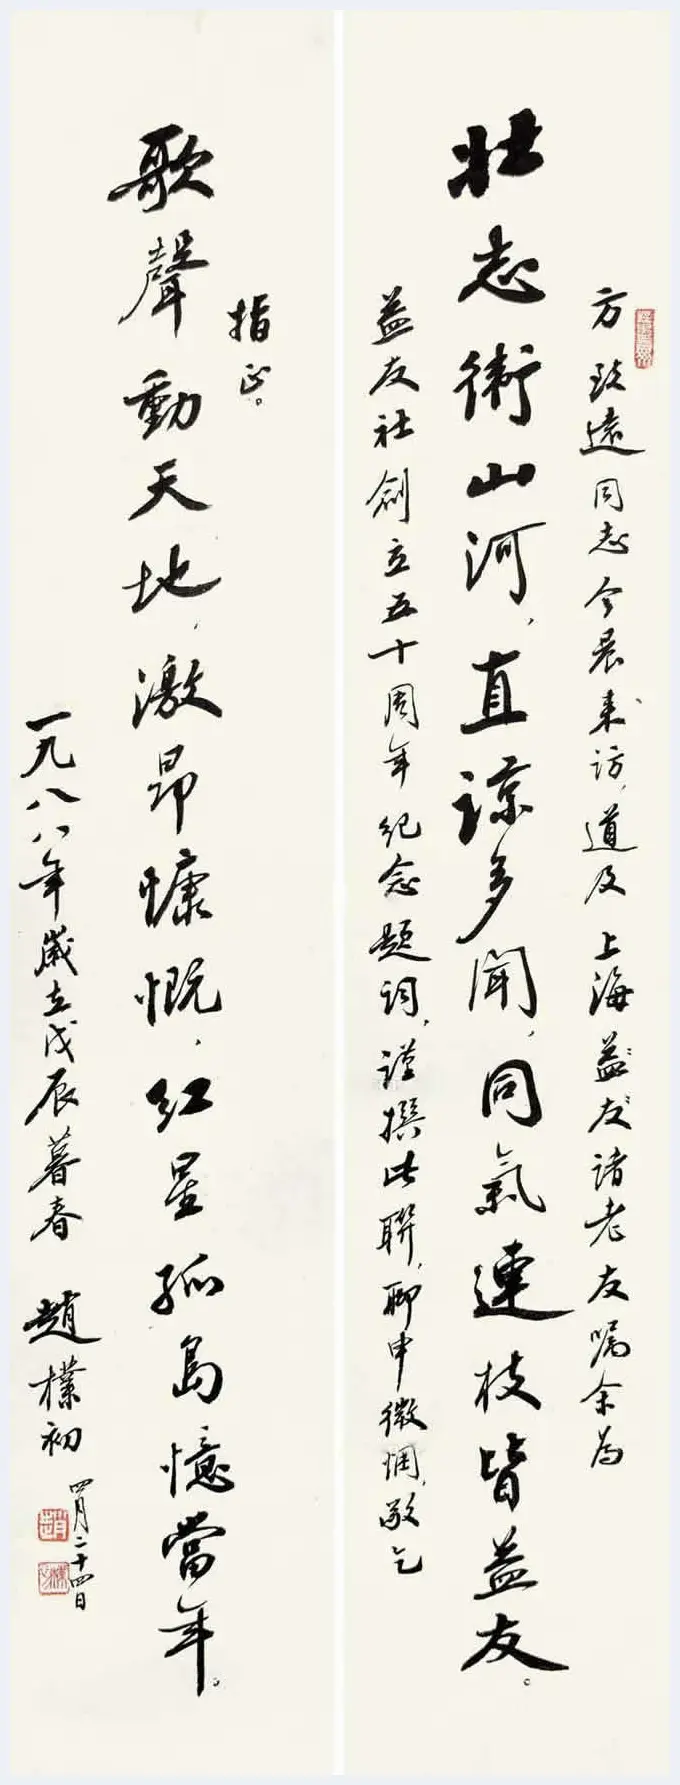 方致遠同志今晨来访，道及上海益友諸老友嘱余為
壮志衛山河，直諒多闻，同氣連枝皆益友。
益友社創立五十周年纪念题词，謹撰此聯，聊申微悃，敬乞
指正。
歌聲動天地，激昂慷慨，红星孤島憶當年。
一九八八年歲在戊辰暮春 趙樸初
四月二十四日